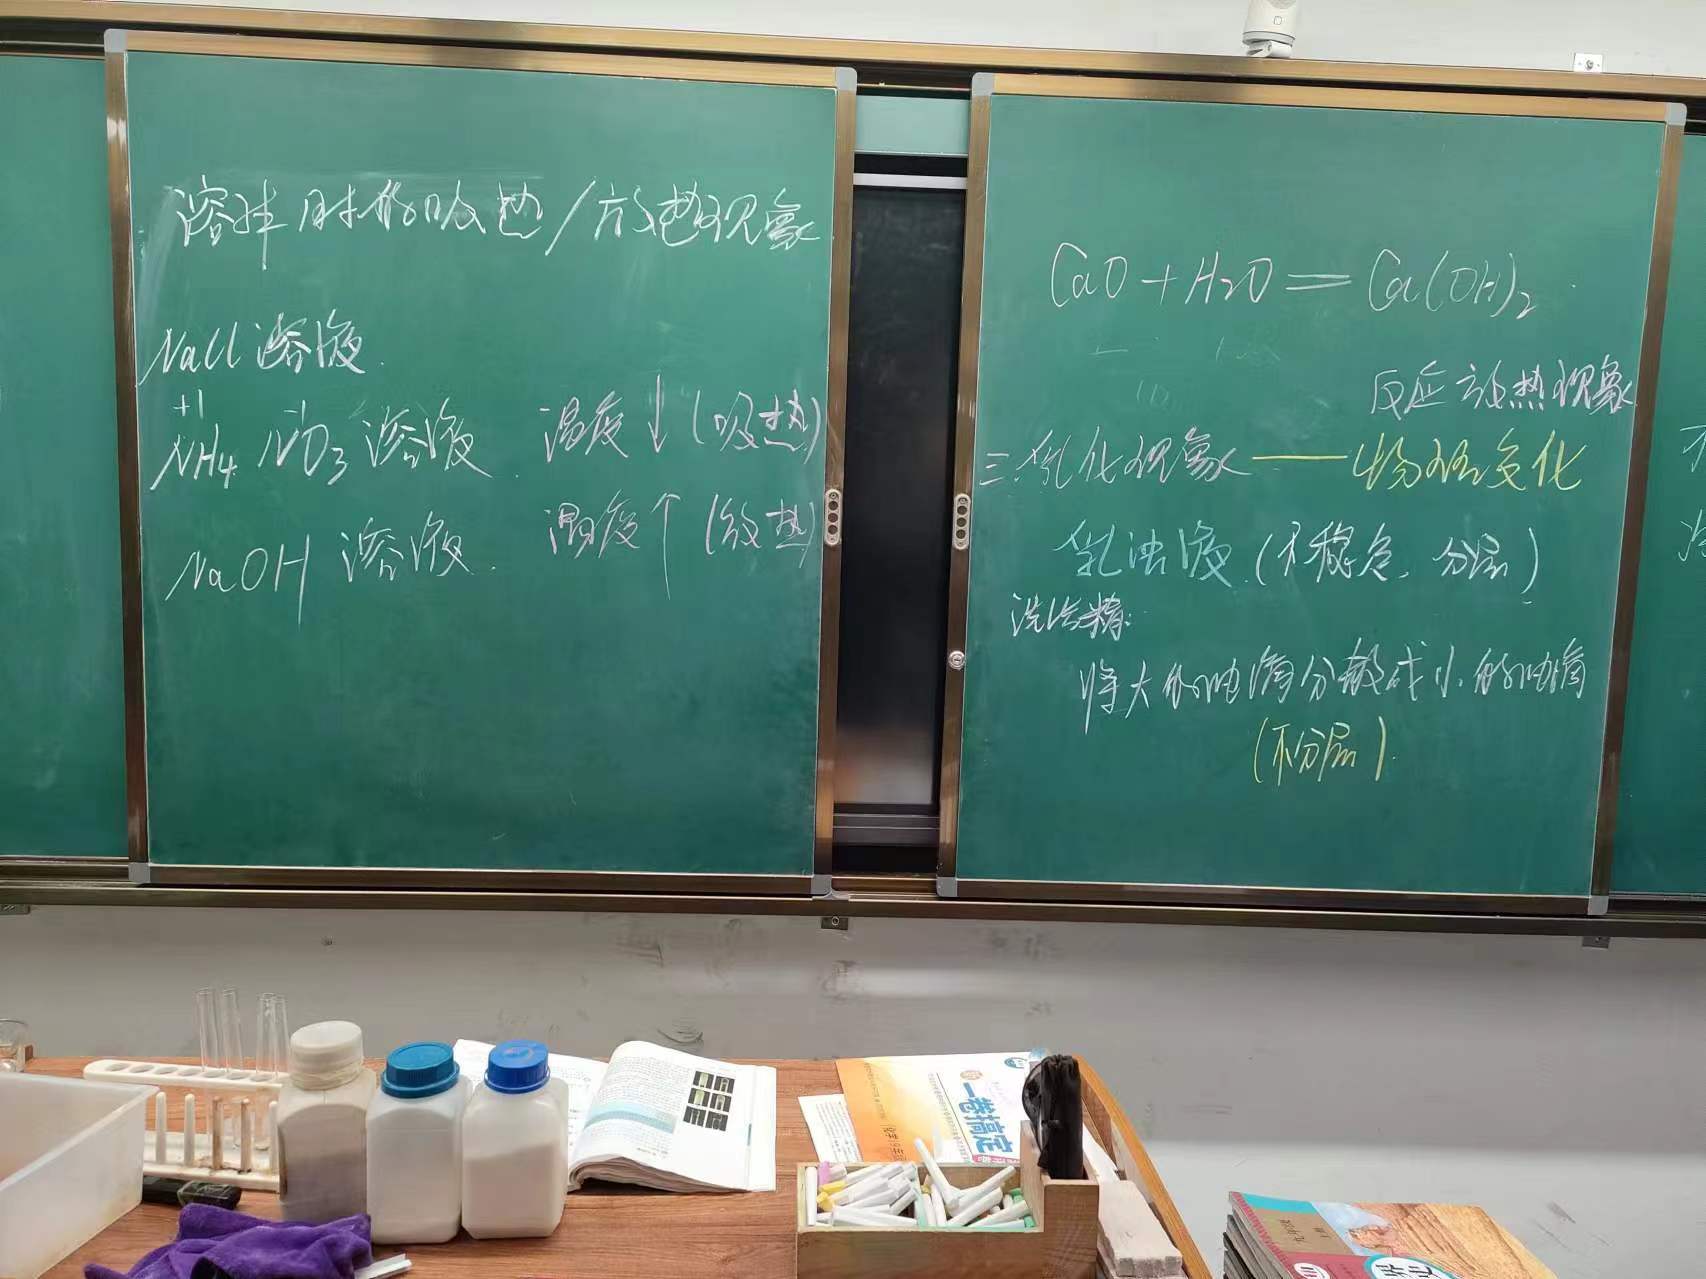 溶解时的吸热/放热现象
NaCl 溶液.
+1 -1
NH4 NO3 溶液. 温度↓(吸热)
NaOH 溶液. 温度↑(放热)
CaO + H2O = Ca(OH)2
反应放热现象
三.乳化现象——物理变化
乳浊液.(不稳定、分层)
洗洁精:
将大的油滴分散成小的油滴
(不分层).
一卷搞定